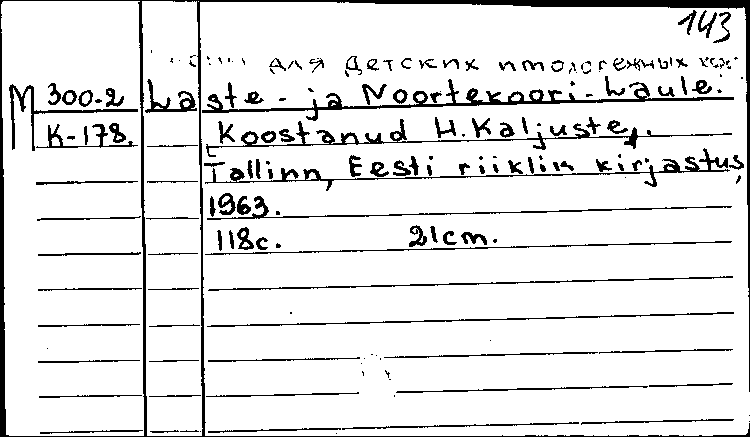 143
для детских и молодежных хор.
M 300-2 Laste - ja Noortekoori - Laule.
K-178. [Koostanud H. Kaljuste].
Tallinn, Eesti riiklik kirjastus,
1963.
118c. 21cm.